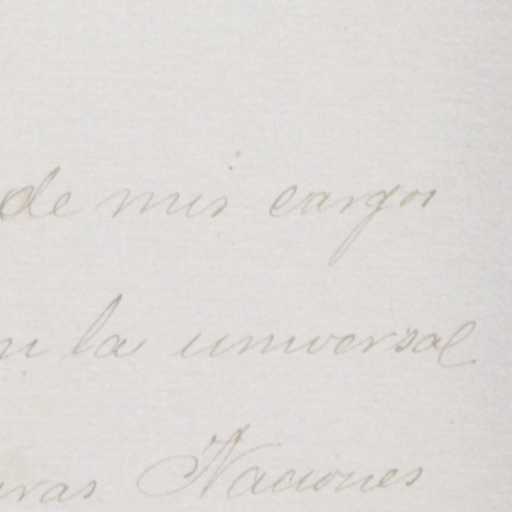 de mis cargos
la universal
Naciones